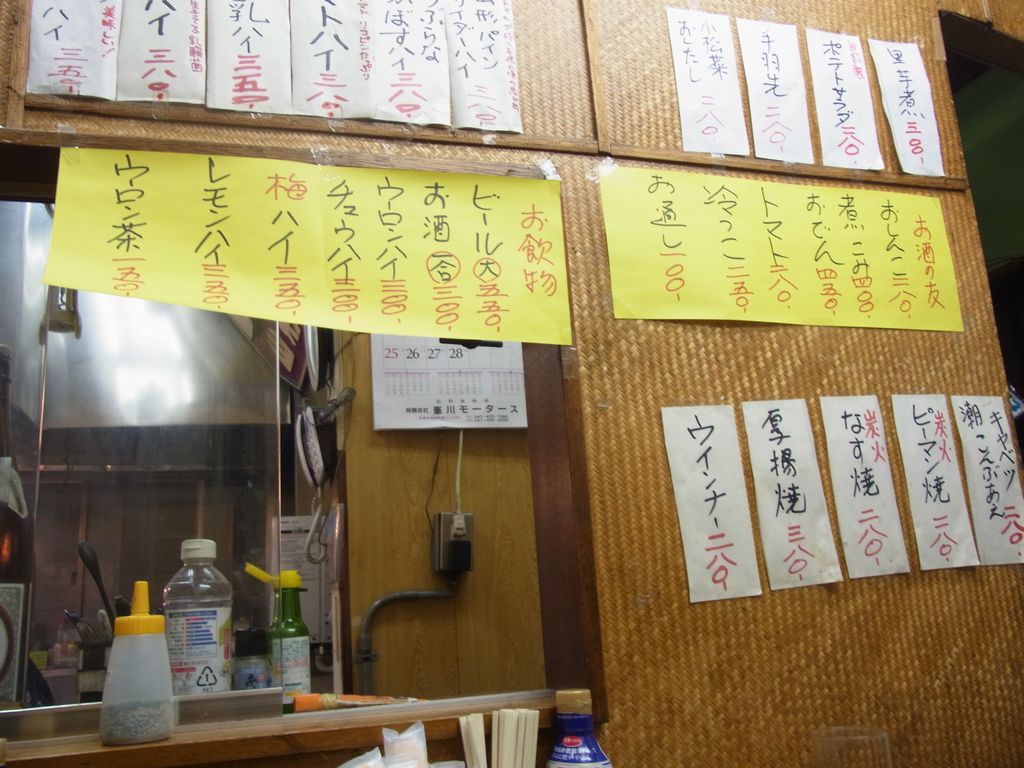 ハイ 三五〇-
美味しい!
ハイ 三八〇-
乳ハイ 三五〇
トマトハイ 三八〇-
かぼすハイ 三八〇-
山形パイン
サイダーハイ 三八〇-
小松菜
おしたし 二八〇-
手羽先 二八〇-
ポテトサラダ 二八〇-
里芋煮 三〇〇-
お飲物
ビール 大 五五〇-
お酒 一合 三〇〇-
ウーロンハイ 三〇〇-
チュウハイ 三〇〇-
梅ハイ 三五〇-
レモンハイ 三五〇-
ウーロン茶 一五〇-
お酒の友
おしんこ 二八〇-
煮こみ 四〇〇-
おでん 四五〇-
トマト 二八〇-
冷っこ 二五〇-
お通し 一〇〇-
キャベツ
潮こんぶあえ 二八〇-
炭火
ピーマン焼 二八〇-
炭火
なす焼 二八〇-
厚揚焼 三八〇-
ウインナー 二八〇
25 26 27 28
有限会社 峯川モータース
PET